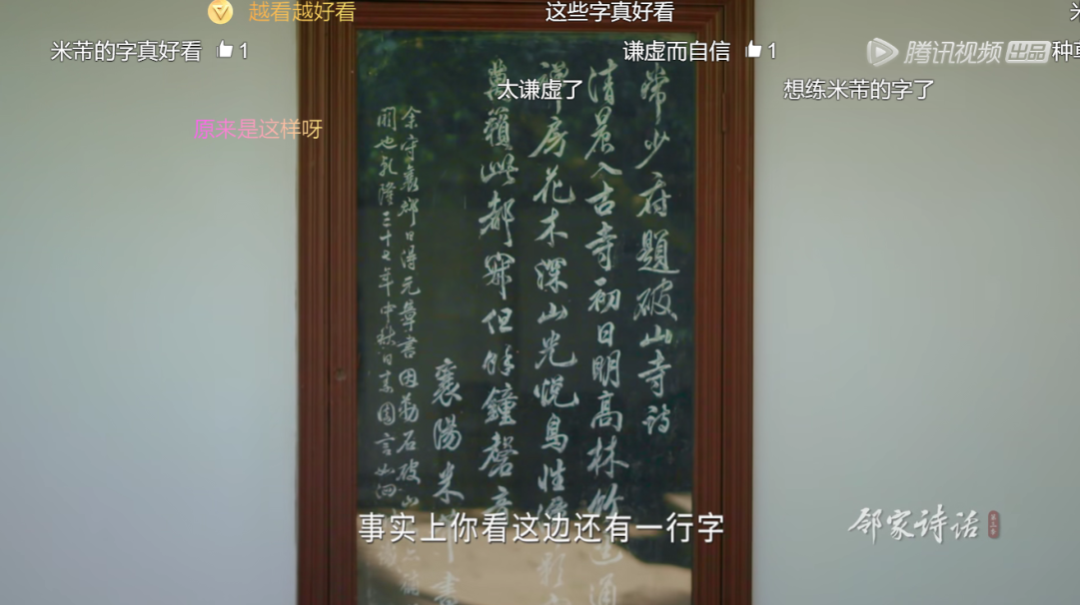 越看越好看
这些字真好看
米
米芾的字真好看 1
谦虚而自信 1
腾讯视频 出品
种草
太谦虚了
想练米芾的字了
原来是这样呀
常少府題破山寺詩
清晨入古寺初日明高林竹通
禪房花木深山光悅鳥性潭影
萬籟此都寂但餘鐘磬音
襄陽米書
余守襄日得元章書因勒石破山
間也乾隆三十七年中秋日素園言如泗
事实上你看这边还有一行字
邻家诗话